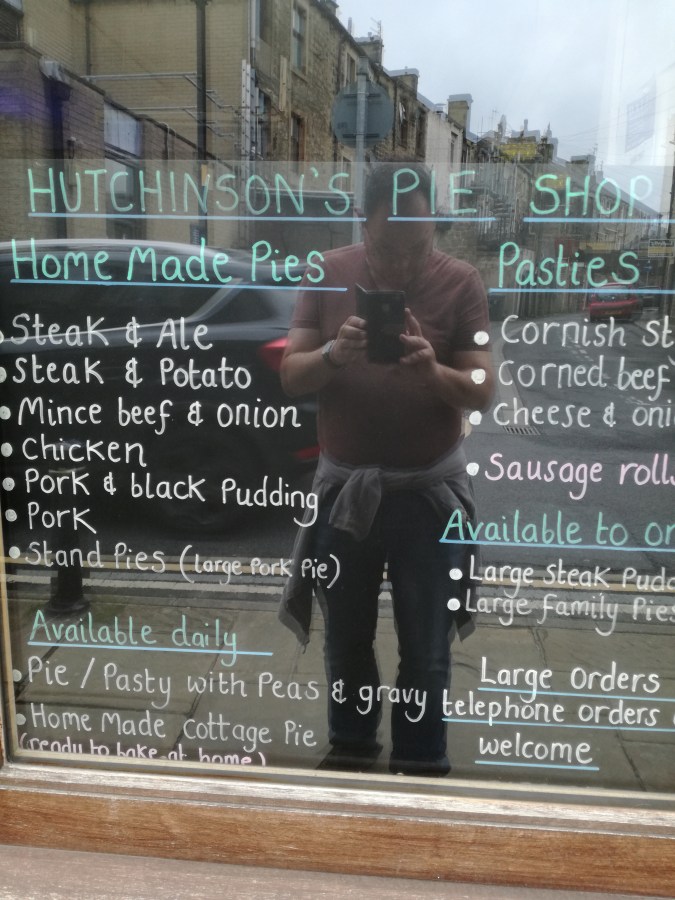 HUTCHINSON'S PIE SHOP
Home Made Pies
• Steak & Ale
• Steak & Potato
• Mince beef & onion
• Chicken
• Pork & black Pudding
• Pork
• Stand Pies (large Pork Pie)
Available daily
• Pie / Pasty with Peas & gravy
• Home Made Cottage Pie
(ready to bake at home)
Pasties
• Cornish St
• Corned beef
• Cheese & oni
• Sausage rolls
Available to or
• Large Steak Pudd
• Large family Pies
Large Orders
telephone orders
welcome